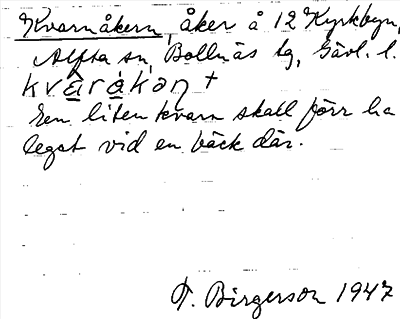 Kvarnåkern, åker å 12 Kyrkbyn,
Alfta sn, Bollnäs tg, Gävl. l.
kvā̀rákən +
Een liten kvarn skall förr ha
legat vid en bäck där.
T. Birgerson 1947